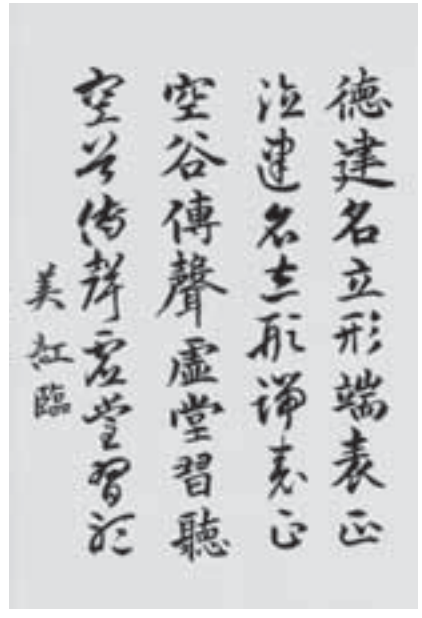 德建名立形端表正
德建名立形端表正
空谷傳聲虛堂習聽
空谷傳聲虛堂習聽
美紅臨